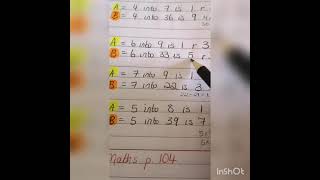 A = 4 into 7 is 1 r
B = 4 into 36 is 9
A = 6 into 9 is 1 r 3
B = 6 into 33 is 5 r
A = 7 into 9 is 1
B = 7 into 22 is 3
A = 5 into 8 is 1
B = 5 into 39 is 7
Maths p. 104
InShOt